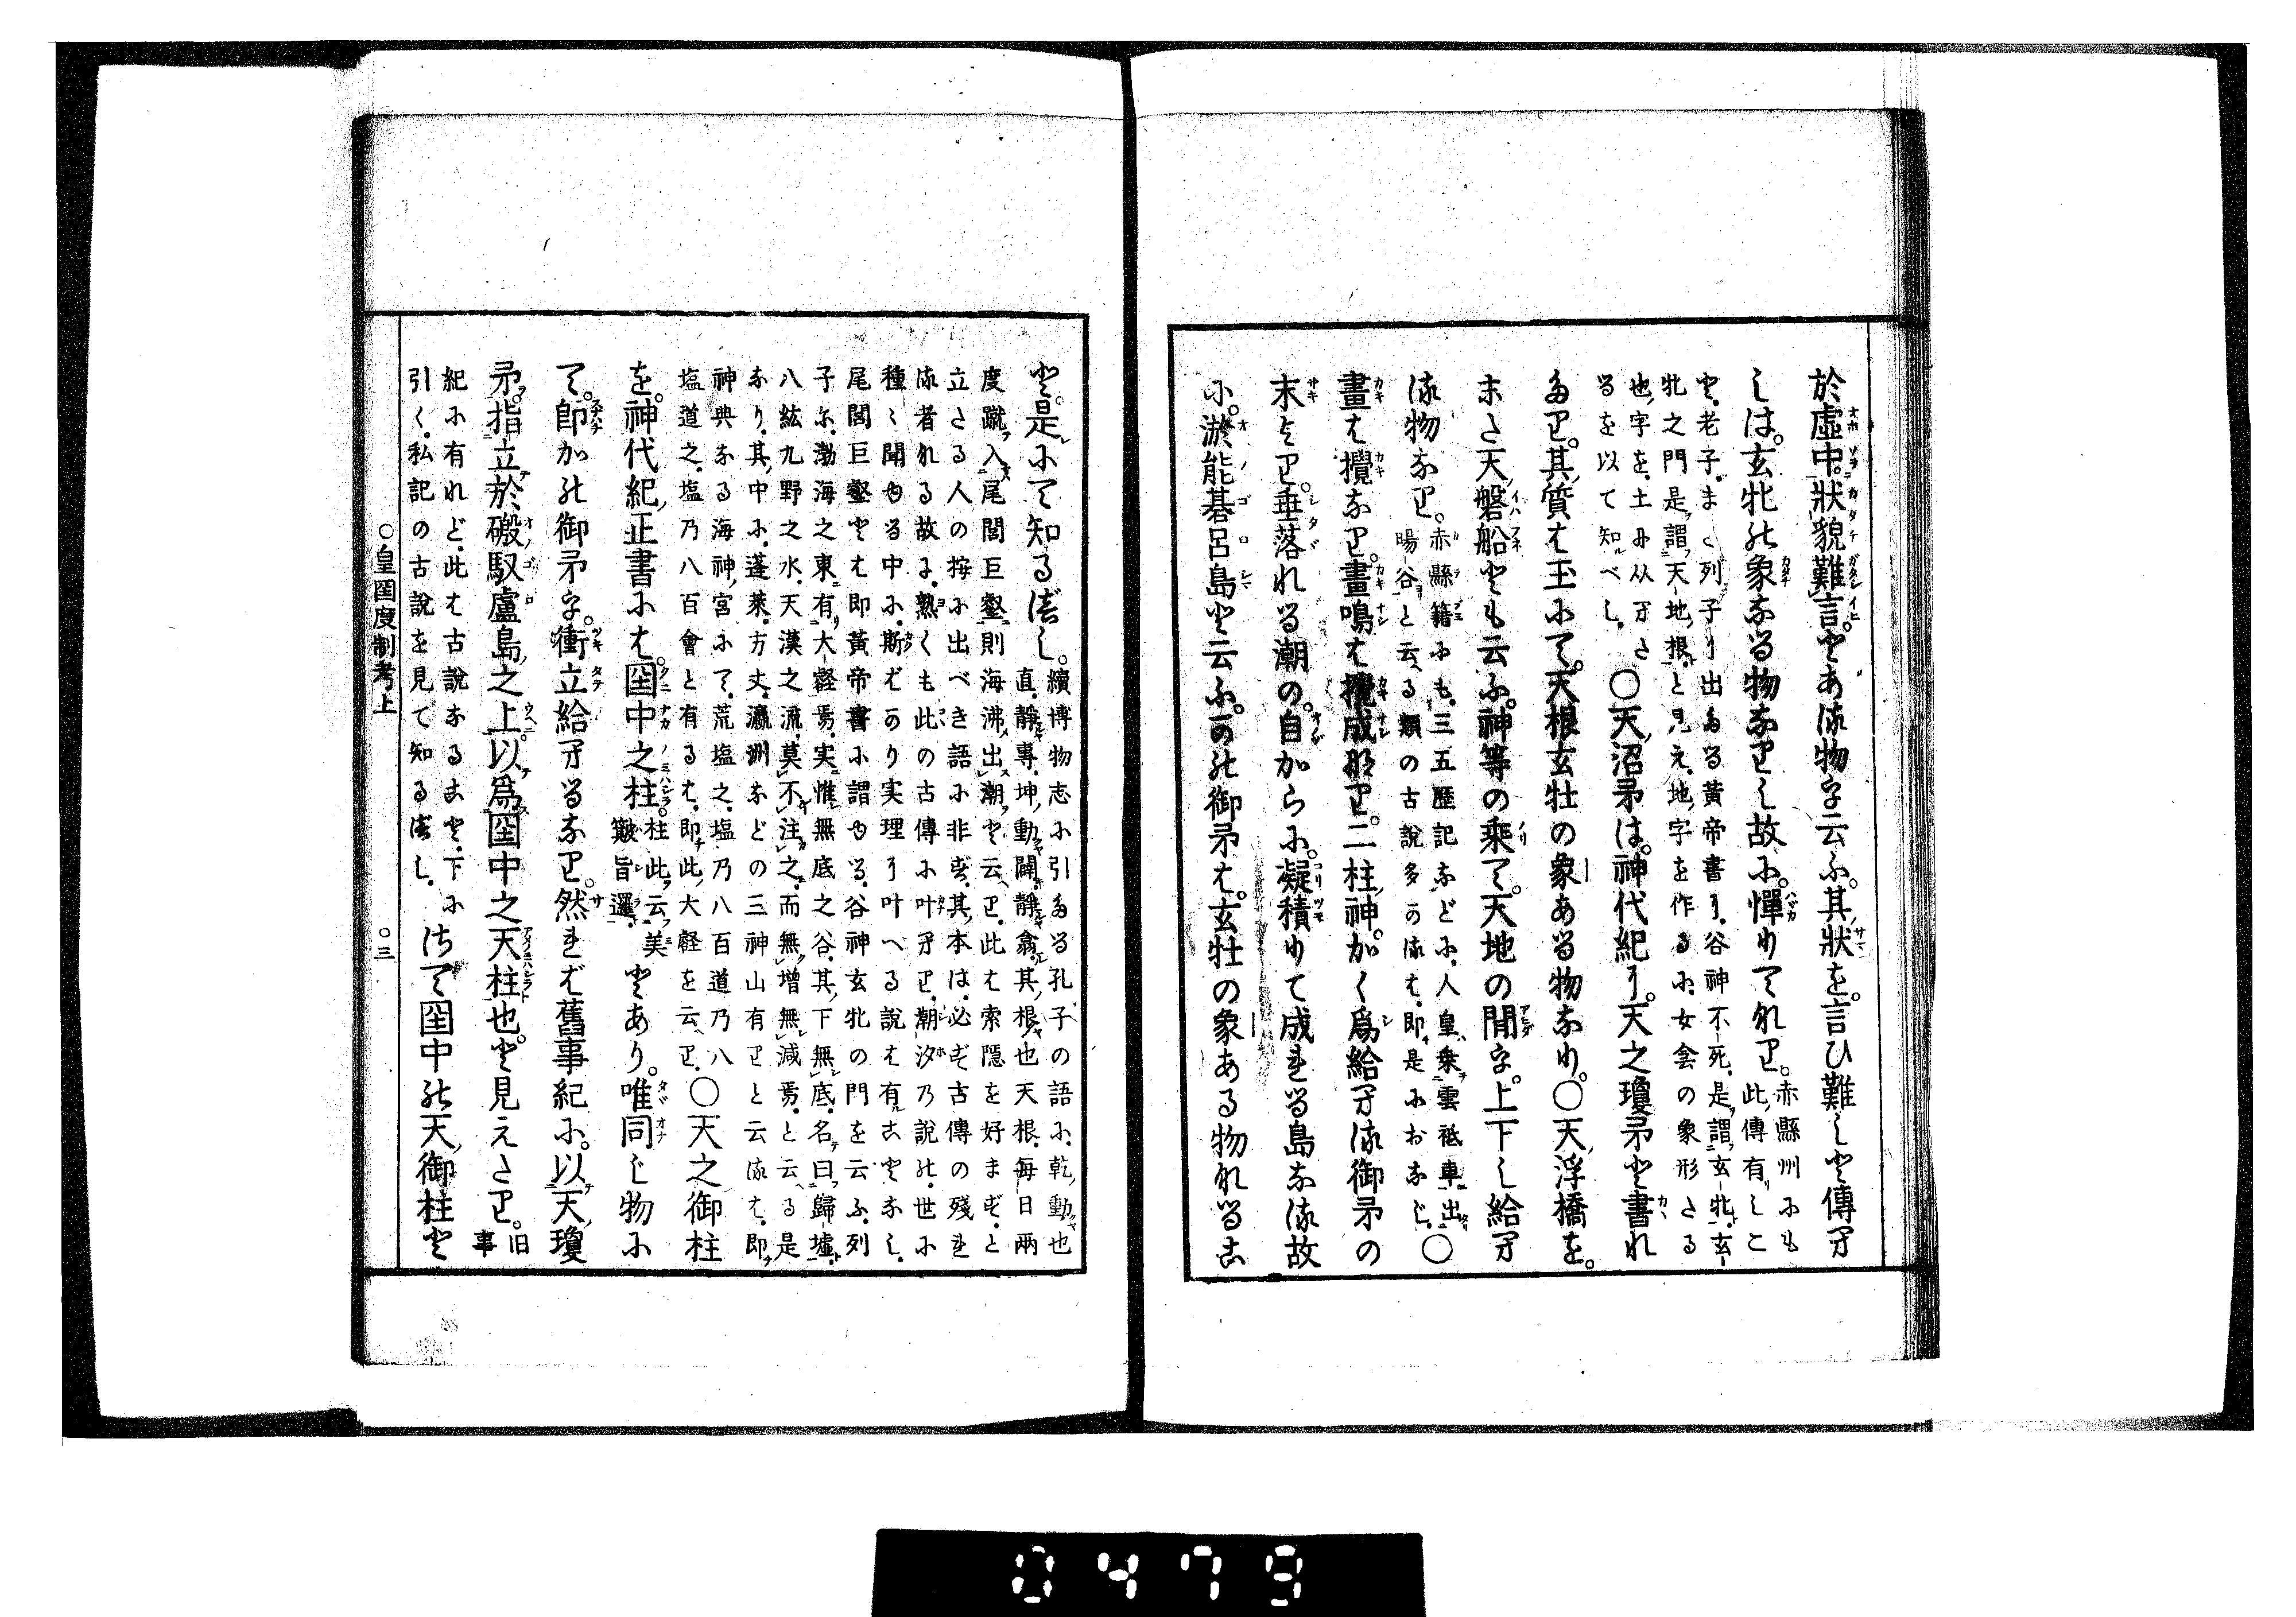 於虛中。狀貌難言。とある物を云ふ。其狀を。言ひ難しと傳へ
しは。玄牝の象なる物なりし故に。憚りてなり。赤縣州にも此傳有しこ
と。老子。また列子に出たる黃帝書に。谷神不死。是謂玄牝。玄
牝之門是謂天地根。と見え。地字を作るに。女会の象形たる
也字を。土に从へた
るを以て知べし。〇天沼矛は。神代紀に。天之瓊矛と書れ
たり。其質は玉にて。天根玄牡の象ある物なり。〇天浮橋を。
また天磐船とも云ふ。神等の乘て。天地の間を。上下し給へ
る物なり。赤縣籍にも。三五歷記などに。人皇乘雲祇車出
暘谷と云へる類の古說多かるは。即是におなじ。〇
畫は攪なり。畫鳴は攪成那り。二柱神。かく爲給へる御矛の
末より。垂落れる潮の。自からに。凝積りて成れる島なる故
に。淤能碁呂島と云ふ。かの御矛は。玄牡の象ある物なるこ
と。是にて知るべし。續博物志に引たる孔子の語に。乾動也
直。靜專。坤動闢。靜翕。其根也天根。每日兩
度蹴入尾閭巨壑則海沸出潮と云へり。此は索隱を好まず。と
立たる人の按に出べき語に非ず。其本は。必ず古傳の殘れ
る者なる故に。熟くも此の古傳に叶へり。潮汐乃說の。世に
種〻聞ゆる中に。斯ばかり実理に叶へる說は有ことなし。
尾閭巨壑とは即黃帝書に謂ゆる。谷神玄牝の門を云ふ。列
子に。渤海之東有大壑焉。実惟無底之谷。其下無底。名曰歸墟。
八紘九野之水。天漢之流。莫不注之。而無增無減焉。と云る是
なり。其中に。蓬萊。方丈。瀛洲などの三神山有りと云るは。即
神典なる海神宮にて。荒塩之。塩乃八百道乃八
塩道之。塩乃八百會と有るは。即此大壑を云へり。〇天之御柱
を。神代紀正書には。国中之柱。柱此云美
簸旨邏。とあり。唯同じ物に
て。即かの御矛を。衝立給へるなり。然れば舊事紀に。以天瓊
矛。指立於磤馭盧島之上。以爲国中之天柱也。と見えたり。旧事
紀に有れど。此は古說なること。下に
引く。私記の古說を見て知るべし。さて国中の天御柱と
〇皇国度制考上
〇三
0479